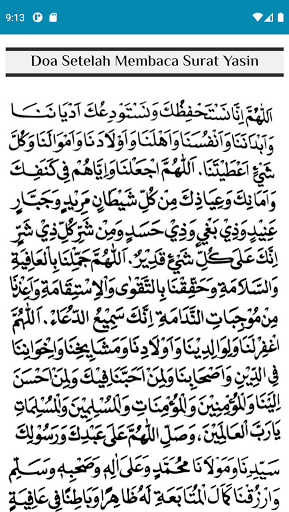 9:13
Doa Setelah Membaca Surat Yasin
اَللّٰهُمَّ اِنَّا نَسْتَحْفِظُكَ وَنَسْتَوْدِعُكَ اَدْيَانَنَا
وَاَبْدَانَنَا وَاَنْفُسَنَا وَاَهْلَنَا وَاَوْلَادَنَا وَاَمْوَالَنَا وَكُلَّ
شَيْءٍ اَعْطَيْتَنَا. اَللّٰهُمَّ اجْعَلْنَا وَاِيَّاهُمْ فِي كَنَفِكَ
وَاَمَانِكَ وَعِيَاذِكَ مِنْ كُلِّ شَيْطَانٍ مَرِيْدٍ وَجَبَّارٍ
عَنِيْدٍ وَذِيْ بَغْيٍ وَذِيْ حَسَدٍ وَمِنْ شَرِّ كُلِّ ذِيْ شَرٍّ
اِنَّكَ عَلَى كُلِّ شَيْءٍ قَدِيْرٌ. اَللّٰهُمَّ جَمِّلْنَا بِالْعَافِيَةِ
وَالسَّلَامَةِ وَحَقِّقْنَا بِالتَّقْوَى وَالْاِسْتِقَامَةِ وَاَعِذْنَا
مِنْ مُوْجِبَاتِ النَّدَامَةِ اِنَّكَ سَمِيْعُ الدُّعَاءِ. اَللّٰهُمَّ
اغْفِرْ لَنَا وَلِوَالِدِيْنَا وَاَوْلَادِنَا وَمَشَايِخِنَا وَاِخْوَانِنَا
فِي الدِّيْنِ وَاَصْحَابِنَا وَلِمَنْ اَحَبَّنَا فِيْكَ وَلِمَنْ اَحْسَنَ
اِلَيْنَا وَلِلْمُؤْمِنِيْنَ وَالْمُؤْمِنَاتِ وَالْمُسْلِمِيْنَ وَالْمُسْلِمَاتِ
يَا رَبَّ الْعَالَمِيْنَ. وَصَلِّ اللّٰهُمَّ عَلَى عَبْدِكَ وَرَسُوْلِكَ
سَيِّدِنَا وَمَوْلَانَا مُحَمَّدٍ وَعَلَى اٰلِهِ وَصَحْبِهِ وَسَلِّمْ
وَارْزُقْنَا كَمَالَ الْمُتَابَعَةِ لَهُ ظَاهِرًا وَبَاطِنًا فِي عَافِيَةٍ